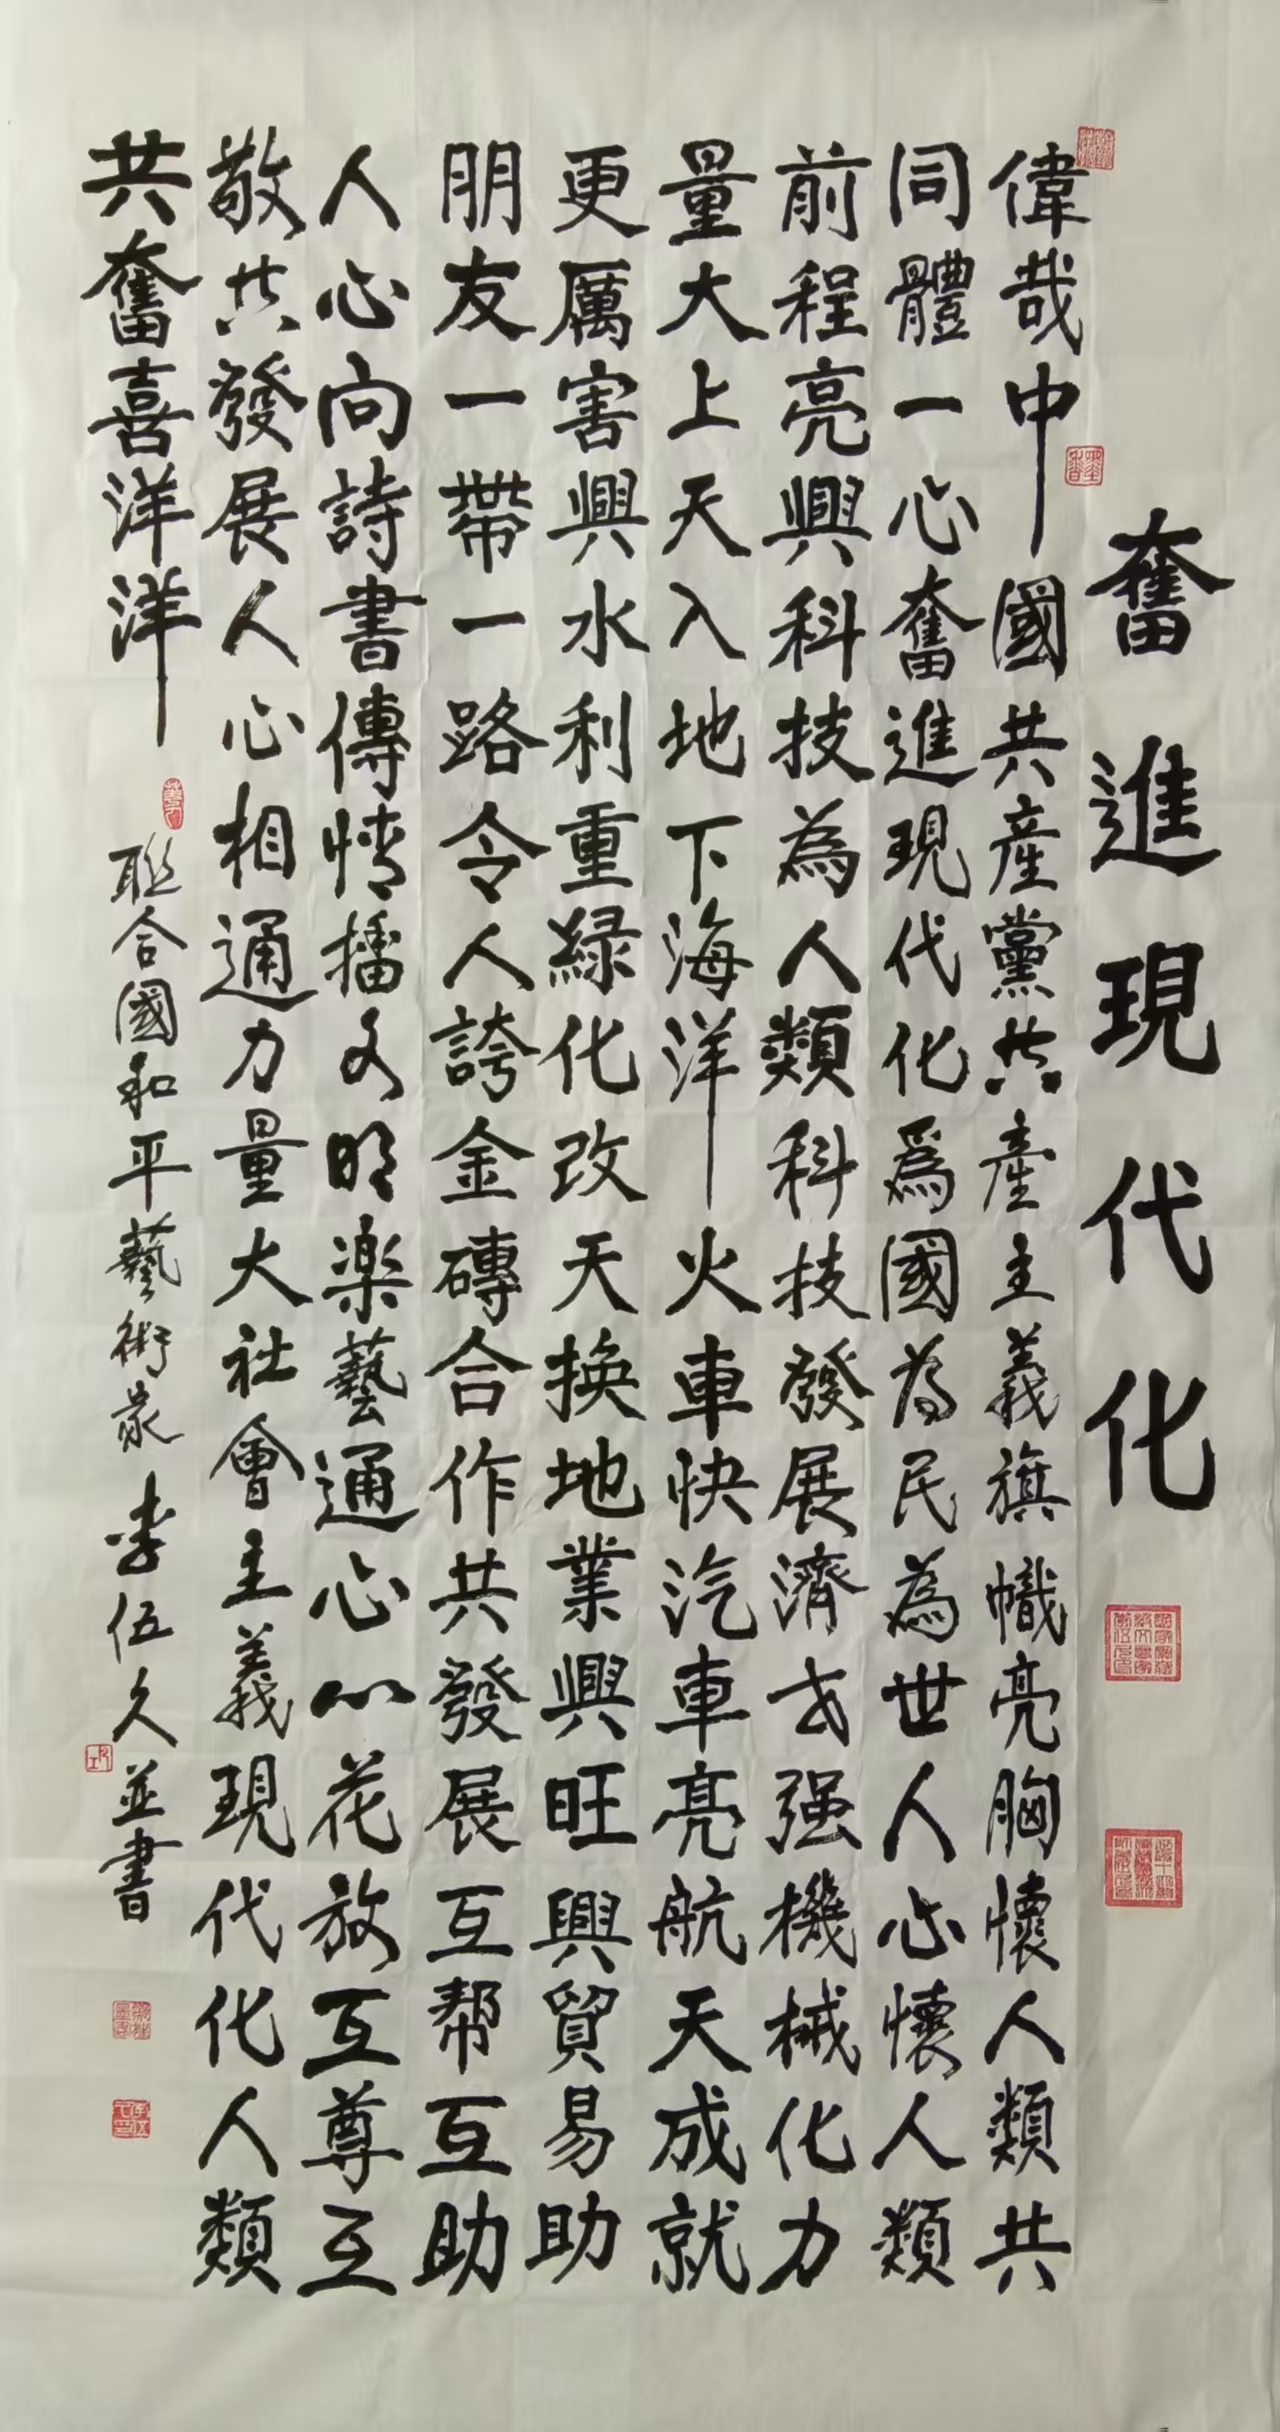 奮進現代化
偉哉中國共產黨共產主義旗幟亮胸懷人類共
同體一心奮進現代化爲國為民為世人心懷人類
前程亮興科技為人類科技發展濟去强機械化力
量大上天入地下海洋火車快汽車亮航天成就
更厲害興水利重緑化改天換地業興旺興貿易助
朋友一帶一路令人誇金磚合作共發展互帮互助
人心向詩書傳情播文明楽藝通心心花放互尊互
敬共發展人心相通力量大社會主義現代化人類
共奮喜洋洋
聯合國和平藝術家李伍久並書